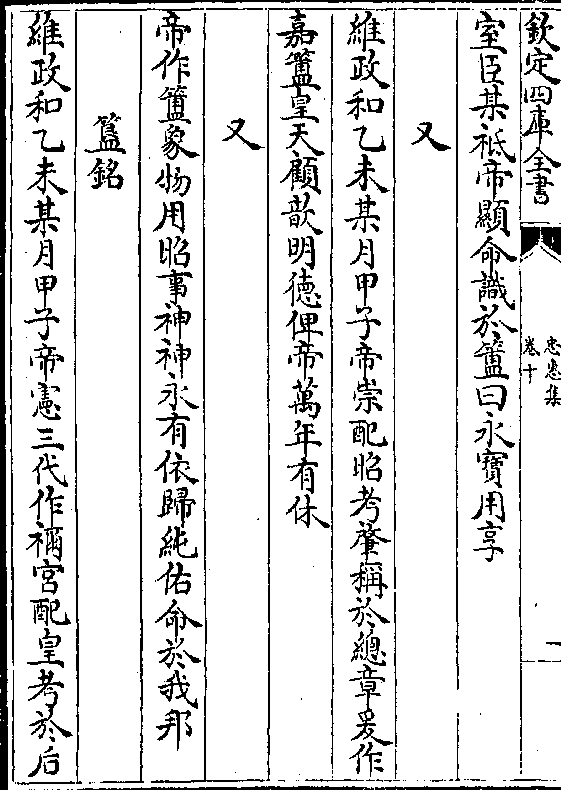 欽定四庫全書
忠惠集
卷十
室臣某祗帝顯命識於簠曰永寶用享
又
維政和乙未某月甲子帝崇配昭考肇稱於總章爰作
嘉簠皇天顧歆明德俾帝萬年有休
又
帝作簠象物用昭事神神永有依歸純佑命於我邦
簋銘
維政和乙未某月甲子帝憲三代作禰宮配皇考於后